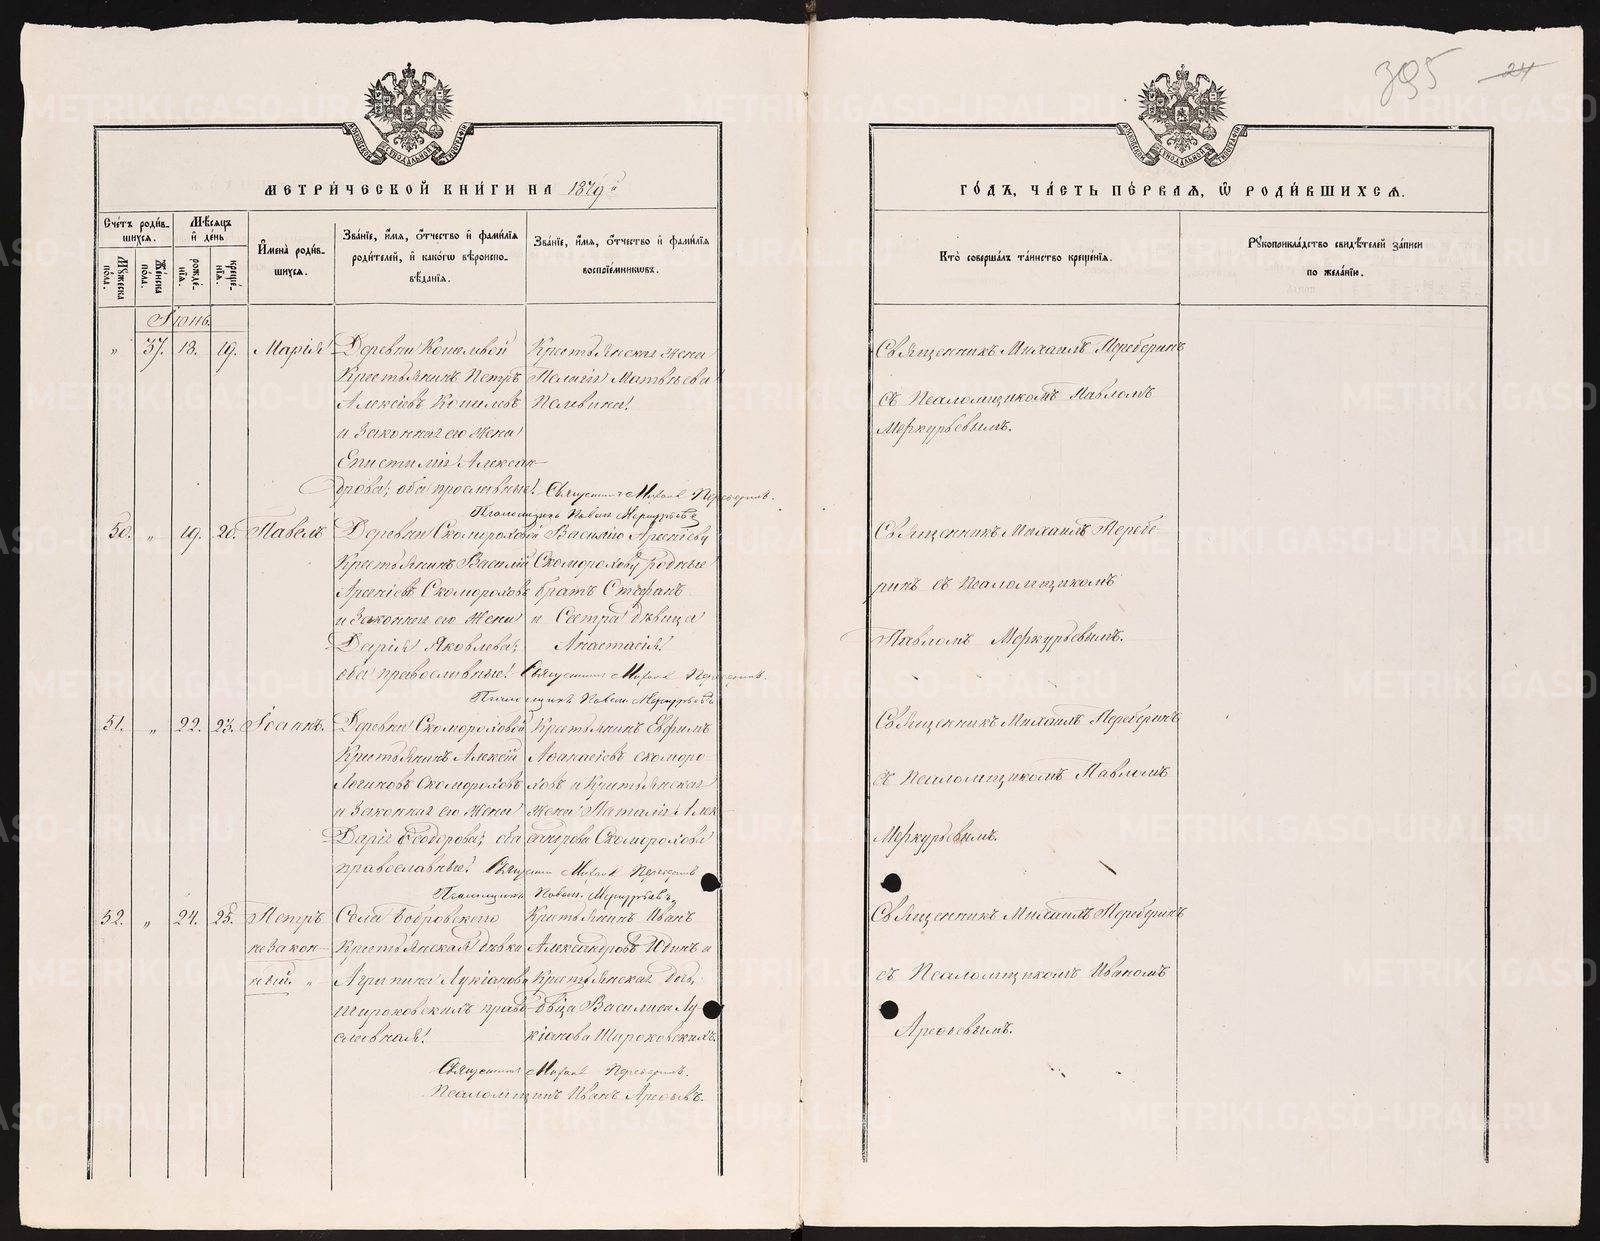 395 24
МЕТРИ́ЧЕСКОЙ КНИ́ГИ НА 1879й
ГО́ДЪ, ЧА́СТЬ ПЕ́РВАЯ, Ѿ РОДИ́ВШИХСЯ.
Сче́тъ роди́вшихся.
Мѣ́сяцъ и де́нь
Мужеска по́ла.
Же́нска по́ла.
рожде́нїя.
креще́нїя.
Имена̀ роди́вшихся.
Зва́нїе, и́мя, о́тчество и фами́лїя роди́телей, и како́гѡ вѣроисповѣ́данїя.
Зва́нїе, и́мя, о́тчество и фами́лїя воспрїе́мникѡвъ.
Кто̀ соверша́лъ та́инство креще́нїя.
Рукоприкла́дство свидѣ́телей за́писи по жела́нїю.
Іюнь.
" 37. 18. 19. Марія
Деревни Копыловой
Крестьянинъ Петръ
Алексіевъ Копыловъ
и законная его жена
Епистимія Алексан-
дрова; оба православные.
Крестьянская жена
Пелагія Матвѣева
Пелевина.
Священникъ Михаилъ Переберинъ
съ Псаломщикомъ Павломъ
Меркурьевымъ.
Священникъ Михаилъ Переберинъ.
Псаломщикъ Павелъ Меркурьевъ
50. " 19. 20. Павелъ
Деревни Скомороховой
Крестьянинъ Василій
Арсеніевъ Скомороховъ
и законная его жена
Дарія Яковлева;
оба православные.
Василію Арсеніеву
Скоморохову родные
братъ Стефанъ
и Сестра дѣвица
Анастасія.
Священникъ Михаилъ Перебе-
ринъ съ Псаломщикомъ
Павломъ Меркурьевымъ.
Священникъ Михаилъ Переберинъ.
Псаломщикъ Павелъ Меркурьевъ
51. " 22. 23. Іоаннъ.
Деревни Скомороховой
Крестьянинъ Алексій
Логиновъ Скомороховъ
и законная его жена
Дарія Ѳеодорова; оба
православные.
Крестьянинъ Евфимъ
Аѳанасіевъ Скоморо-
ховъ и Крестьянская
жена Наталія Алек-
сандрова Скоморохова
Священникъ Михаилъ Переберинъ
съ Псаломщикомъ Павломъ
Меркурьевымъ.
Священникъ Михаилъ Переберинъ
Псаломщикъ Павелъ Меркурьевъ.
52. " 24. 25. Петръ
незакон-
ный. "
Села Бобровскаго
Крестьянская дѣвка
Агрипина Лукіанова
Широковскихъ право-
славная.
Крестьянинъ Иванъ
Александровъ Юдинъ и
Крестьянская дочь,
дѣвица Василиса Лу-
кіанова Широковскихъ.
Священникъ Михаилъ Переберинъ
съ Псаломщикомъ Иваномъ
Арефьевымъ.
Священникъ Михаилъ Переберинъ.
Псаломщикъ Иванъ Арефьевъ.
METRIKI.GASO-URAL.RU